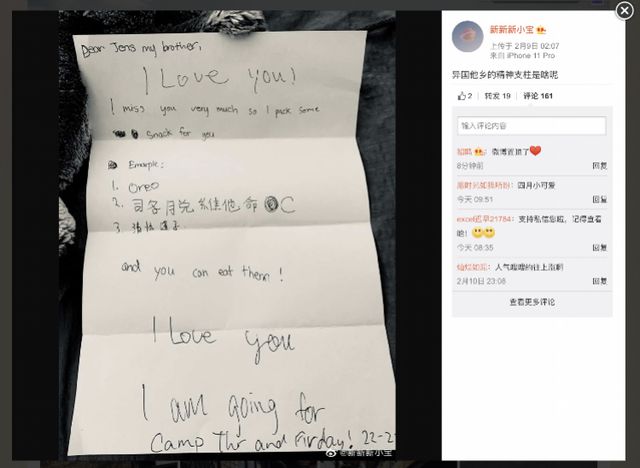 Dear Jens my brother,
I Love you!
I miss you very much so I pick some
snack for you
Emarple:
1. Oreo
2. 司各月兑維他命 C
3.
and you can eat them!
I Love you
I am going for
Camp Thr and Firday! 22-2
@新新新小宝
新新新小宝
上传于 2月9日 02:07
来自 iPhone 11 Pro
异国他乡的精神支柱是啥呢
2 | 转发 19 | 评论 161
输入评论内容
微博置顶了
8分钟前 回复
四月小可爱
今天 09:51 回复
excel迟早21784:支持私信您啦,记得查看
哈!
今天 08:35 回复
人气嗖嗖的往上涨啊
2月10日 23:08 回复
查看更多评论